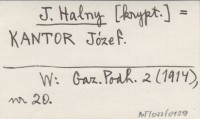 J. Halny [krypt.] =
KANTOR Józef.
W: Gaz. Podh. 2 (1914),
nr 20.